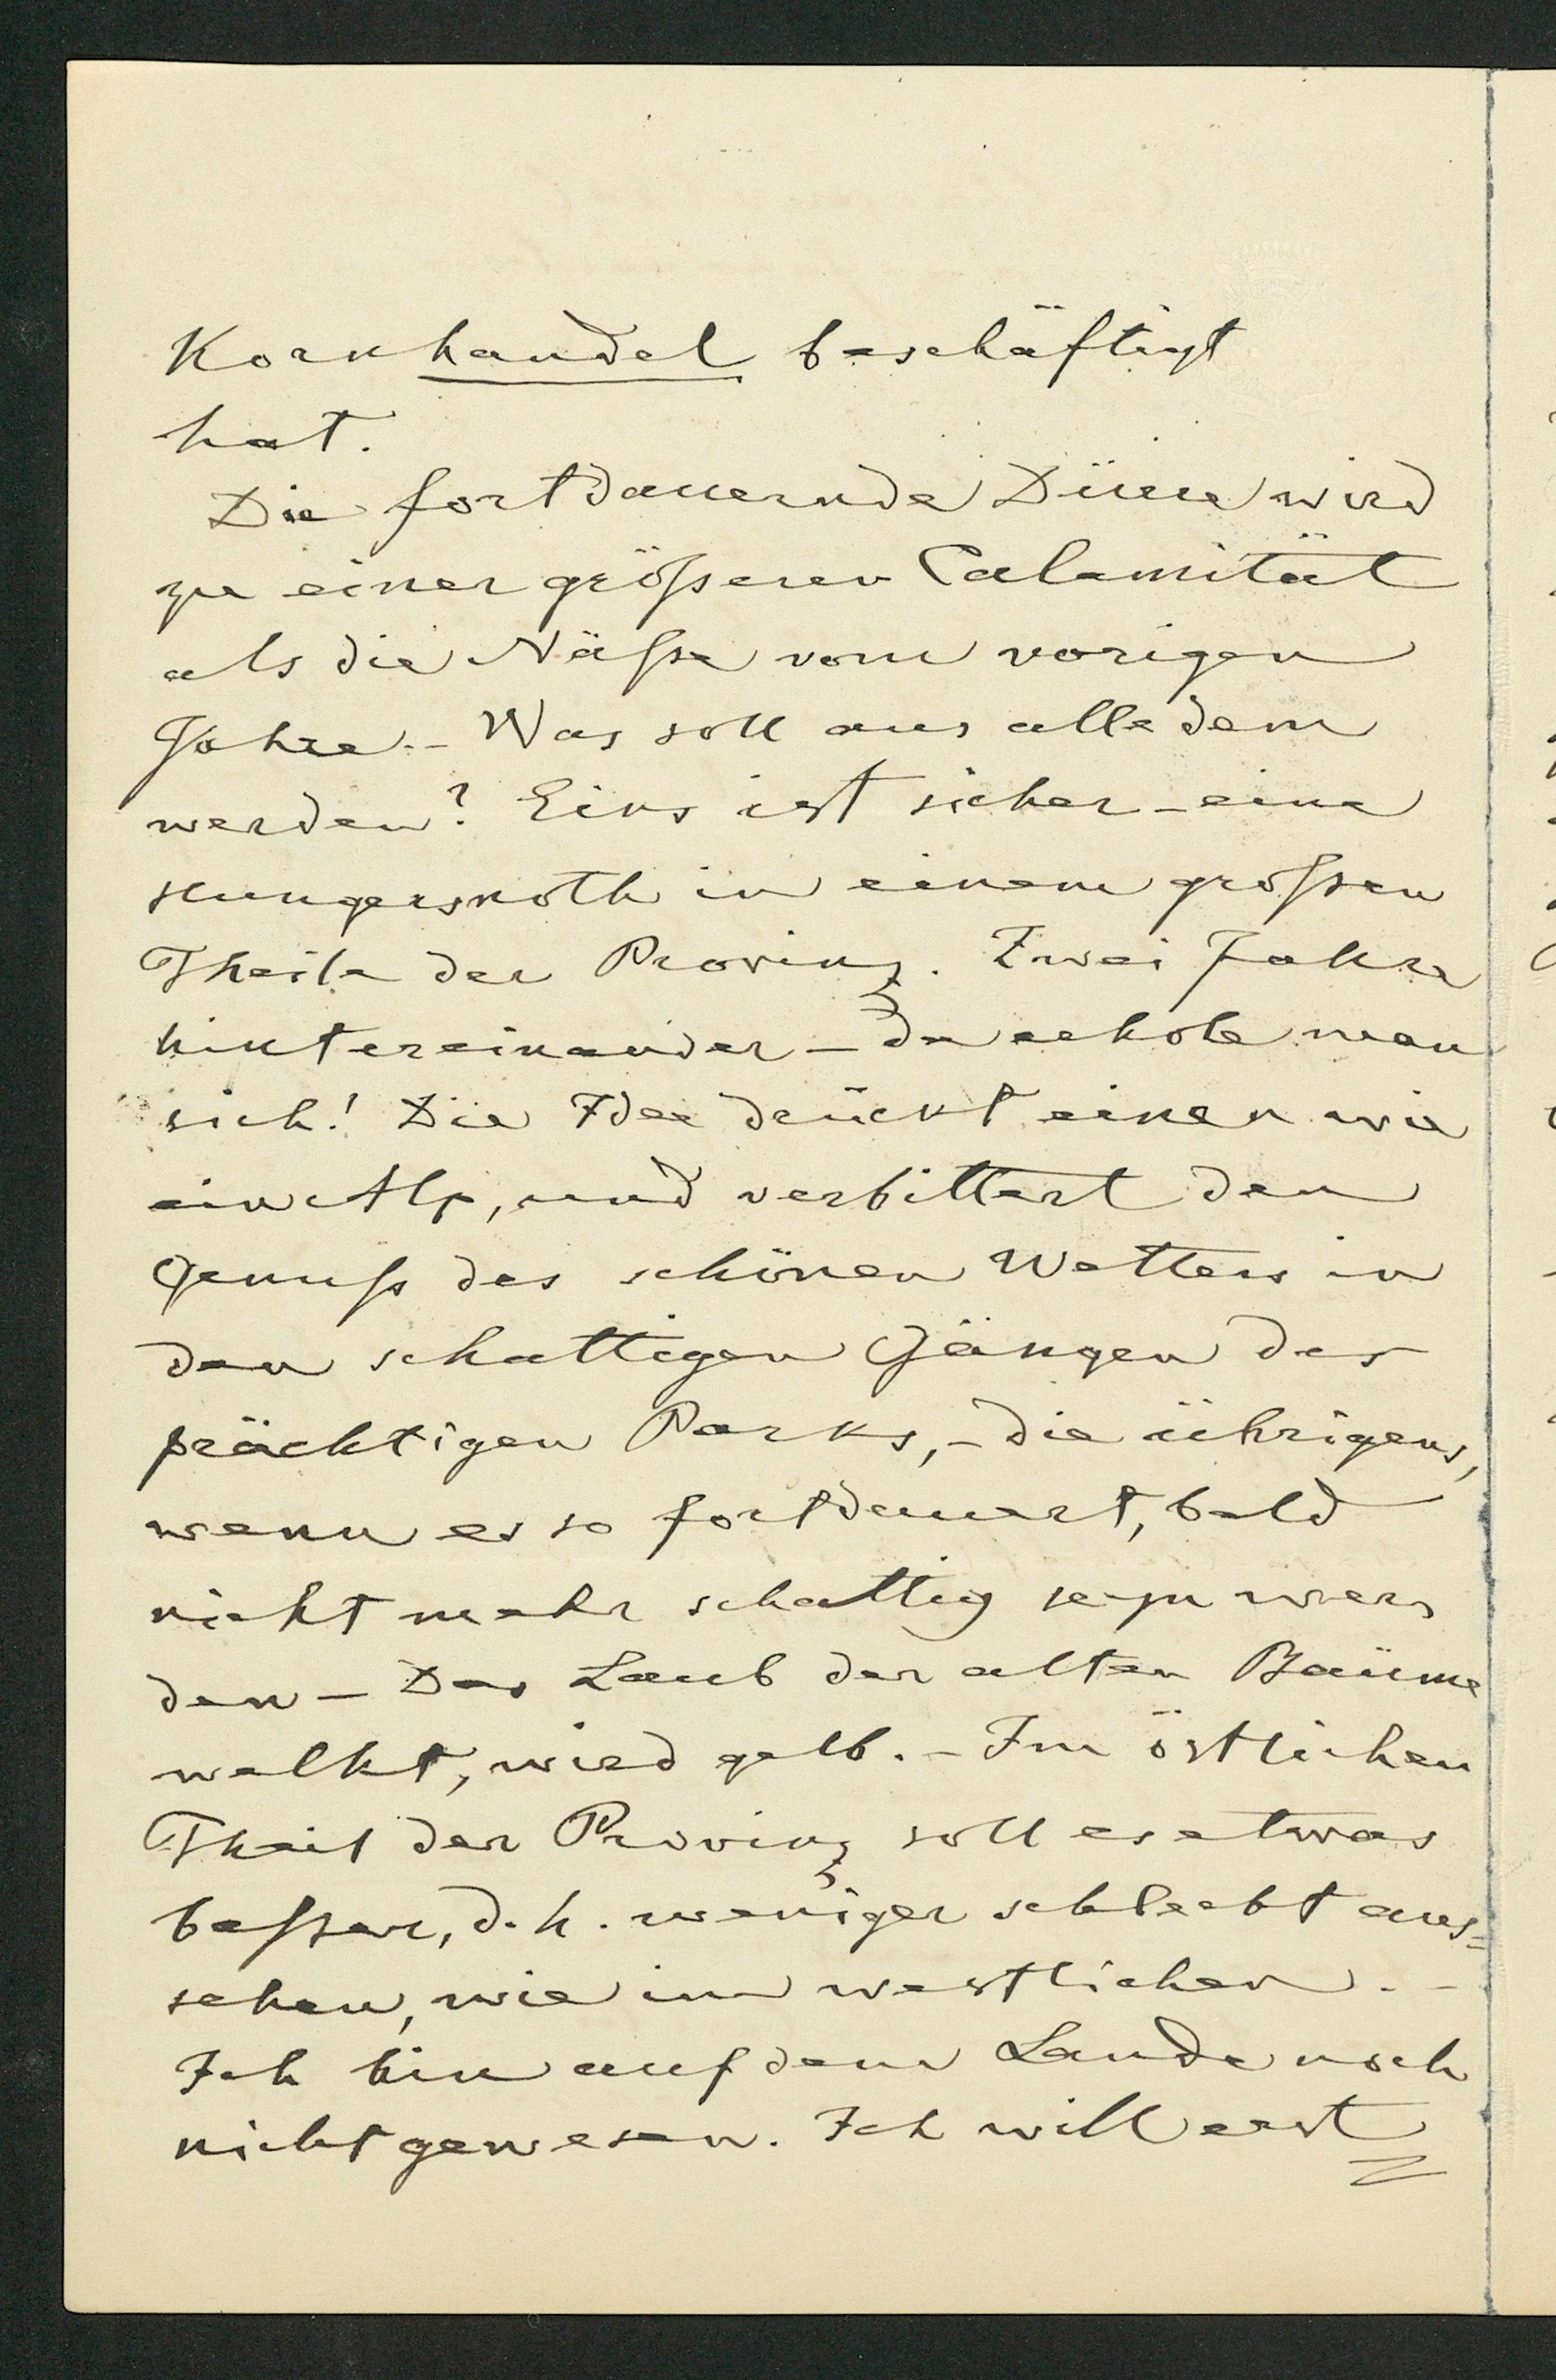 Kornhandel beschäftigt
hat.
Die fortdauernde Dürre wird
zu einer größeren Calamität
als die Näße vom vorigen
Jahre. – Was soll aus alledem
werden? Eins ist sicher – eine
Hungersnoth in einem großen
Theile der Provinz. Zwei Jahre
hintereinander – da erhole man
sich! Die Idee drückt einen wie
ein Alp, und verbittert den
Genuß des schönen Wetters in
den schattigen Gängen des
prächtigen Parks, – die übrigens,
wenn es so fortdauert, bald
nicht mehr schattig seyn wer
den – Das Laub der alten Bäume
welkt, wird gelb. – Im östlichen
Theil der Provinz soll es etwas
beßer, d. h. weniger schlecht aus=
sehen, wie im westlichen. –
Ich bin auf dem Lande noch
nicht gewesen. Ich will erst